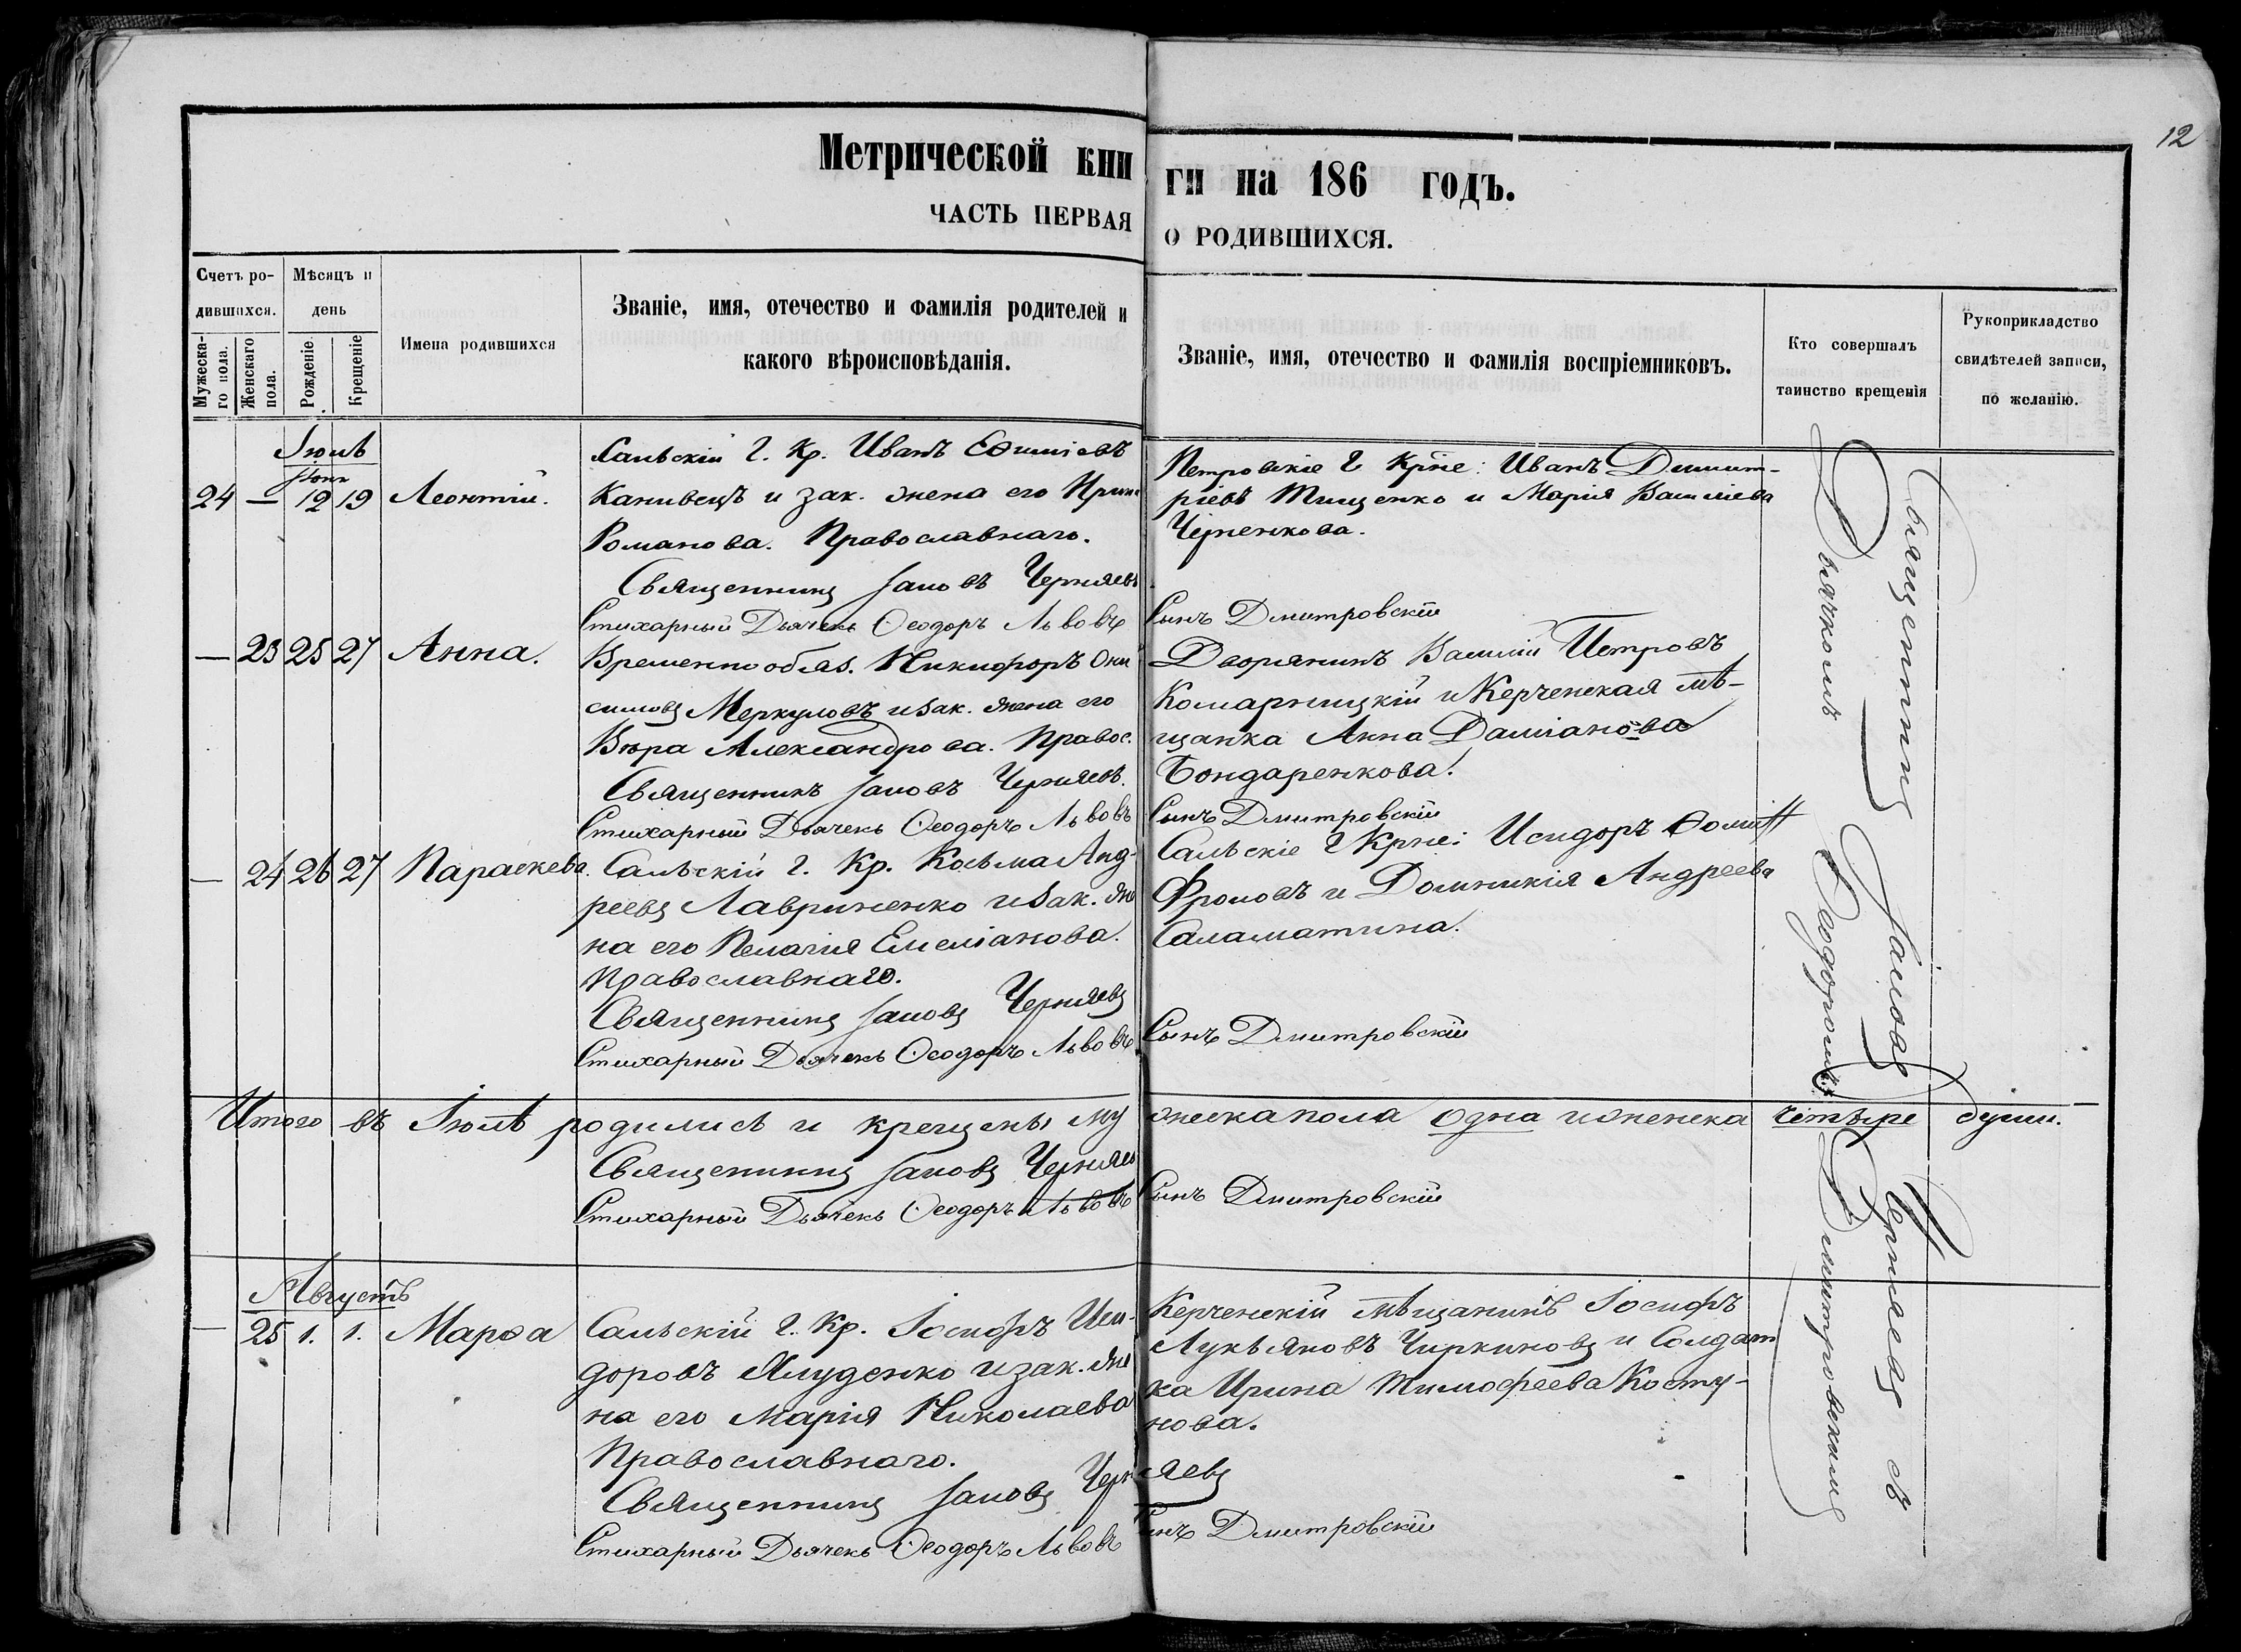 12
Метрической книги на 186 годъ.
ЧАСТЬ ПЕРВАЯ О РОДИВШИХСЯ.
Счетъ родившихся.
Мужескаго пола.
Женскаго пола.
Мѣсяцъ и день
Рожденіе.
Крещеніе
Имена родившихся
Званіе, имя, отечество и фамилія родителей и
какого вѣроисповѣданія.
Званіе, имя, отечество и фамилія воспріемниковъ.
Кто совершалъ
таинство крещенія
Рукоприкладство
свидѣтелей записи,
по желанію.
Іюль
24 — 12 19 Леонтій.
Сальскій г. Кр. Иванъ Еѳиміевъ
Канивецъ и зак. жена его Ирина
Романова. Православнаго.
Петровскіе г Крне: Иванъ Димит-
ріевъ Тищенко и Марія Василіева
Черненкова.
Священникъ Іаковъ Черняевъ
Стихарный Дьячекъ Ѳеодоръ Львовъ Сынъ Дмитровскій
— 23 25 27 Анна.
Временнообяз. Никифоръ Они
симовъ Меркуловъ и зак. жена его
Вѣра Александрова. Правос.
Дворянинъ Василій Петровъ
Комарницкій и Керченская мѣ-
щанка Анна Даміанова
Бондаренкова.
Священникъ Іаковъ Черняевъ.
Стихарный Дьячекъ Ѳеодоръ Львовъ Сынъ Дмитровскій
— 24 26 27 Параскева.
Сальскій г. Кр. Косьма Анд-
реевъ Лавриненко и зак. же
на его Пелагія Емеліанова.
Православнаго.
Сальскіе г Крне: Исидоръ
Фроловъ и Домникія Андреева
Саламатина.
Священникъ Іаковъ Черняевъ
Стихарный Дьячекъ Ѳеодоръ Львовъ Сынъ Дмитровскій
Итого въ Іюлѣ родились и крещены мужеска пола одна и женска четыре души.
Священникъ Іаковъ Черняевъ
Стихарный Дьячекъ Ѳеодоръ Львовъ Сынъ Дмитровскій
Августъ
— 25 1. 1. Марѳа
Сальскій г. Кр. Іосифъ Иси-
доровъ и зак. же
на его Марія Николаева
Православнаго.
Керченскій мѣщанинъ Іосифъ
Лукьяновъ Чиркиновъ и Солдат
ка Ирина Тимофеева Косту-
нова.
Священникъ Іаковъ Черняевъ
Стихарный Дьячекъ Ѳеодоръ Львовъ Сынъ Дмитровскій
Священникъ Іаковъ Черняевъ съ
Дьячкомъ Ѳеодоромъ Дмитровскимъ